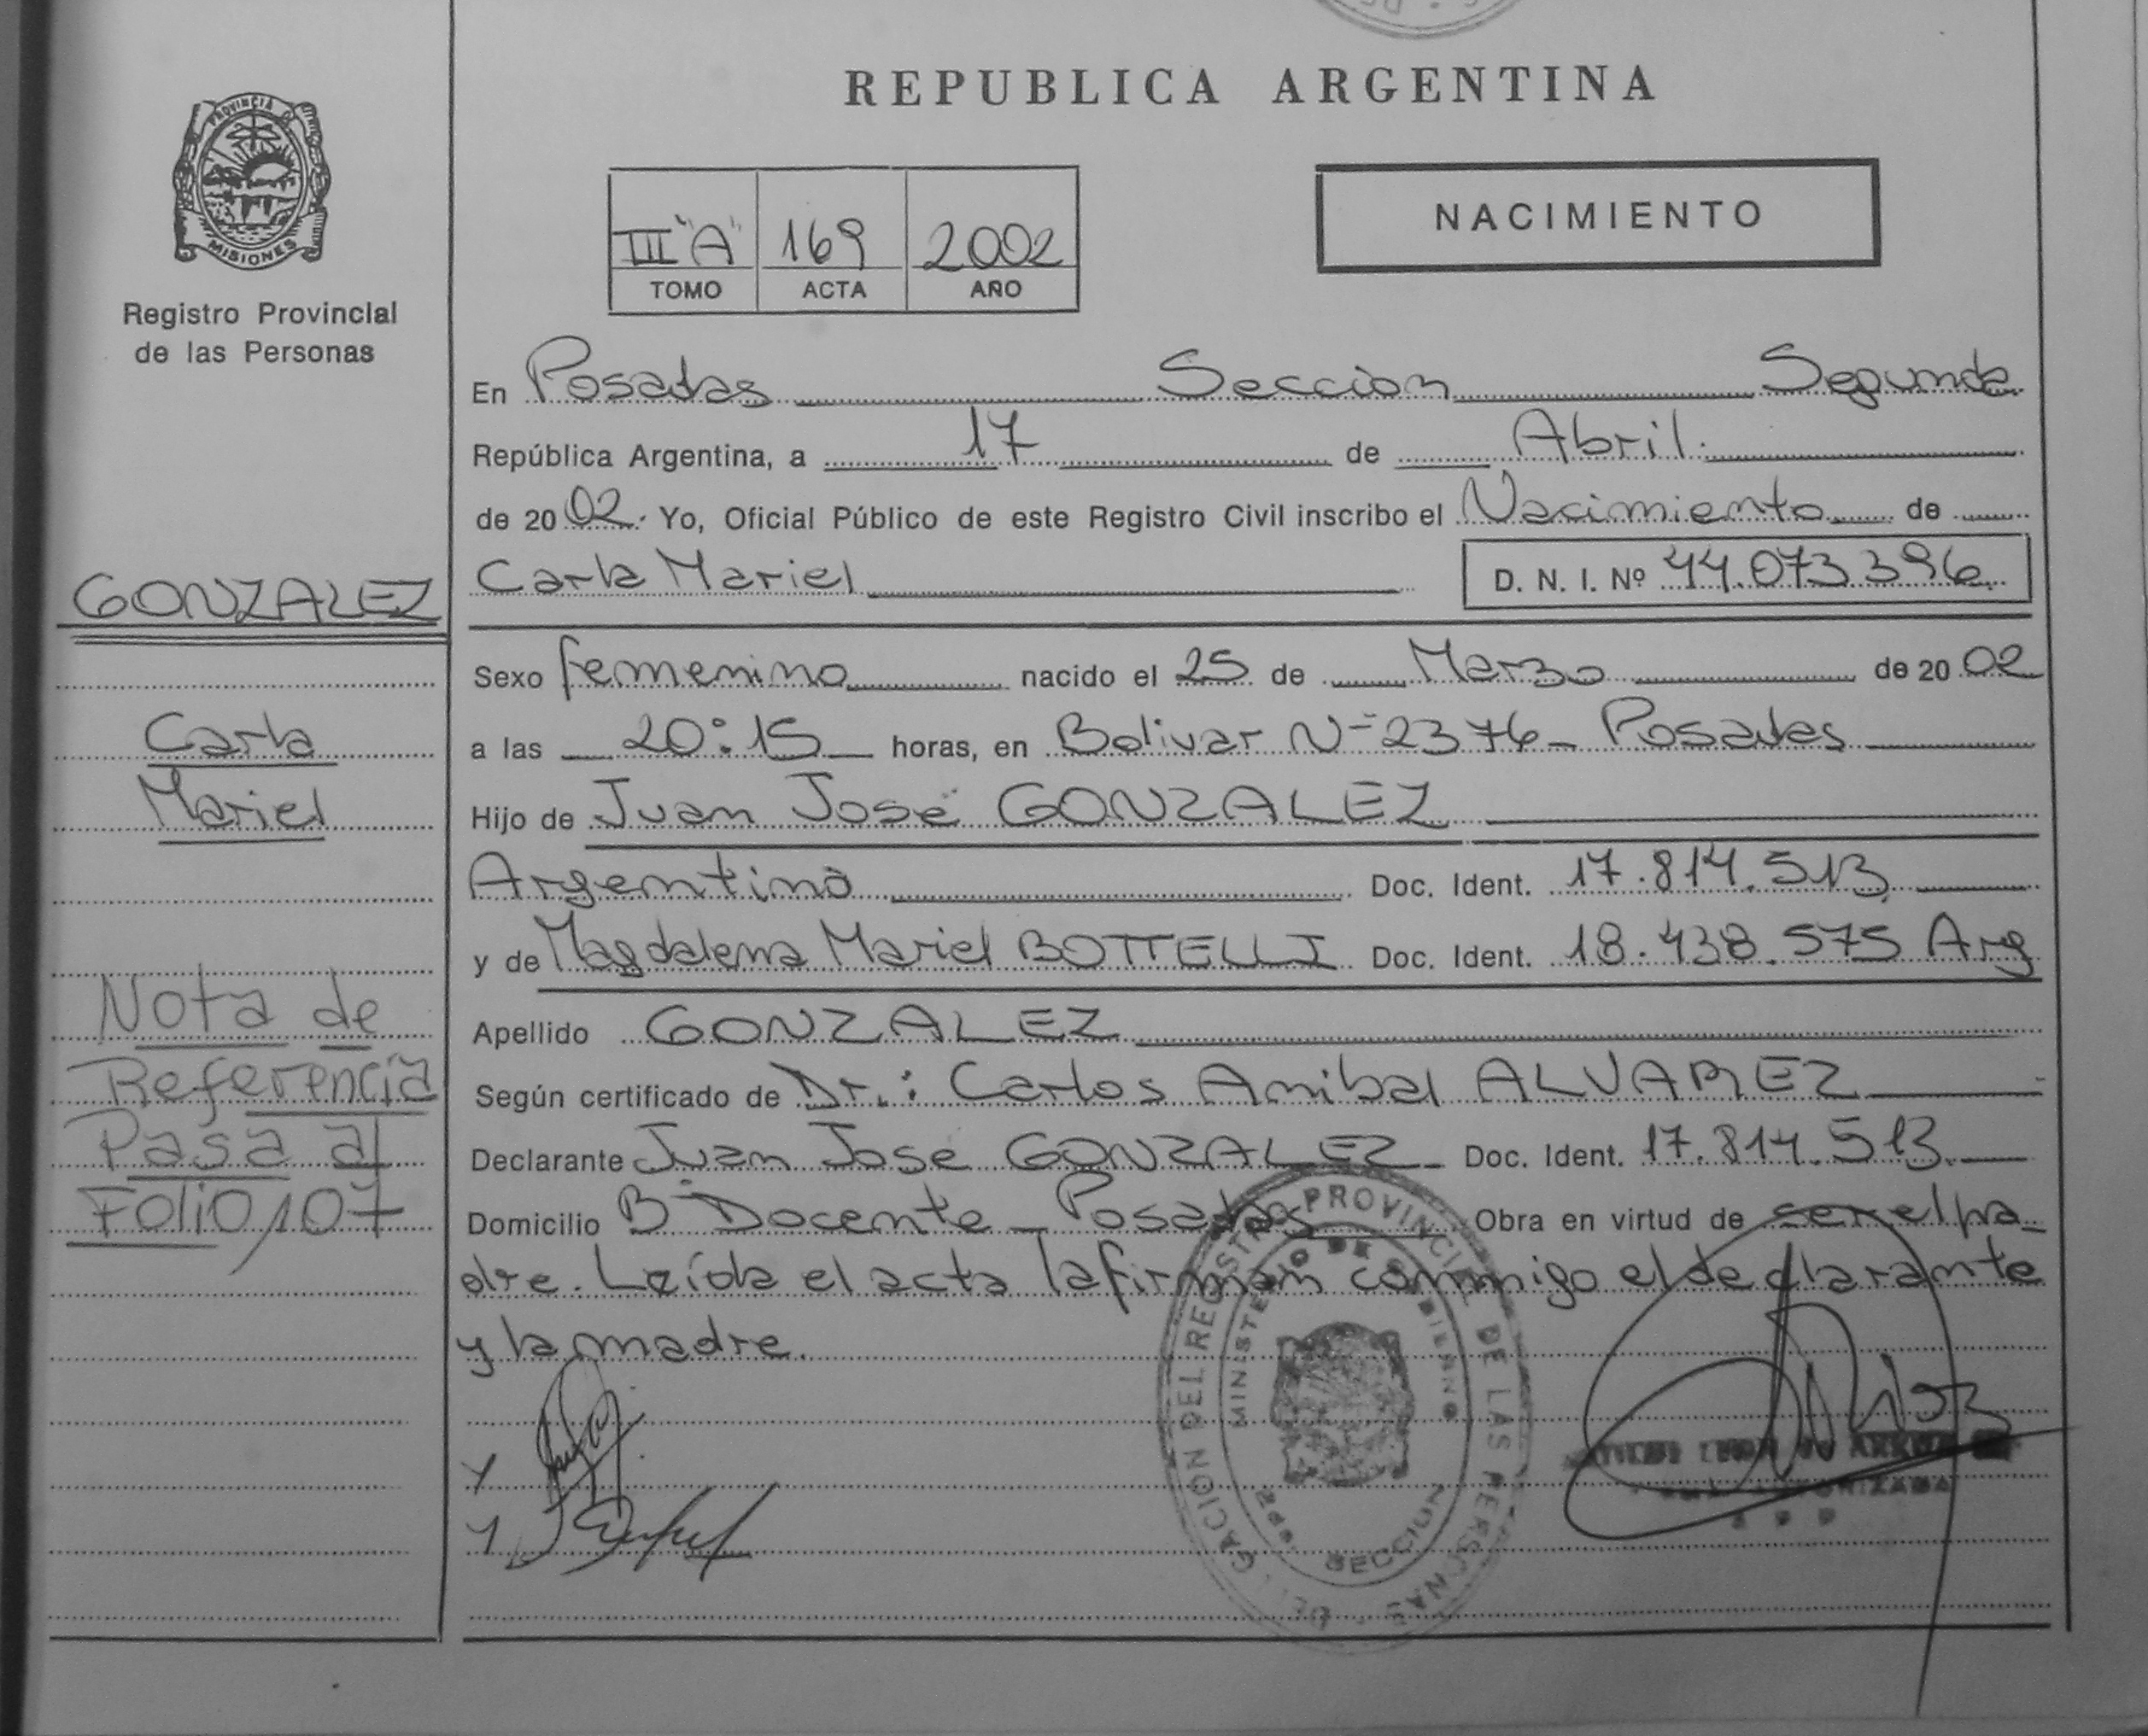 REPUBLICA ARGENTINA
PROVINCIA DE
MISIONES
Registro Provincial
de las Personas
III "A" 169 2002
TOMO ACTA AÑO
NACIMIENTO
En Posadas Sección Segunda
República Argentina, a 17 de Abril.
de 2002. Yo, Oficial Público de este Registro Civil inscribo el Nacimiento de
Carla Mariel D. N. I. Nº 44.073.396
GONZALEZ
Carla
Mariel
Nota de
Referencia
Pasa al
Folio 107
Sexo femenino nacido el 25 de Marzo de 2002
a las 20:15 horas, en Bolivar Nº 2376 - Posadas
Hijo de Juan José GONZALEZ
Argentino Doc. Ident. 17.814.513
y de Magdalena Mariel BOTTELLI Doc. Ident. 18.438.575 Arg
Apellido GONZALEZ
Según certificado de Dr.: Carlos Anibal ALVAREZ
Declarante Juan José GONZALEZ Doc. Ident. 17.814.513
Domicilio Bº Docente - Posadas Obra en virtud de ser el pa-
dre. Leída el acta la firman conmigo el declarante
y la madre.
DELEGACION DEL REGISTRO PROVINCIAL DE LAS PERSONAS
MINISTERIO DE GOBIERNO
SECCION